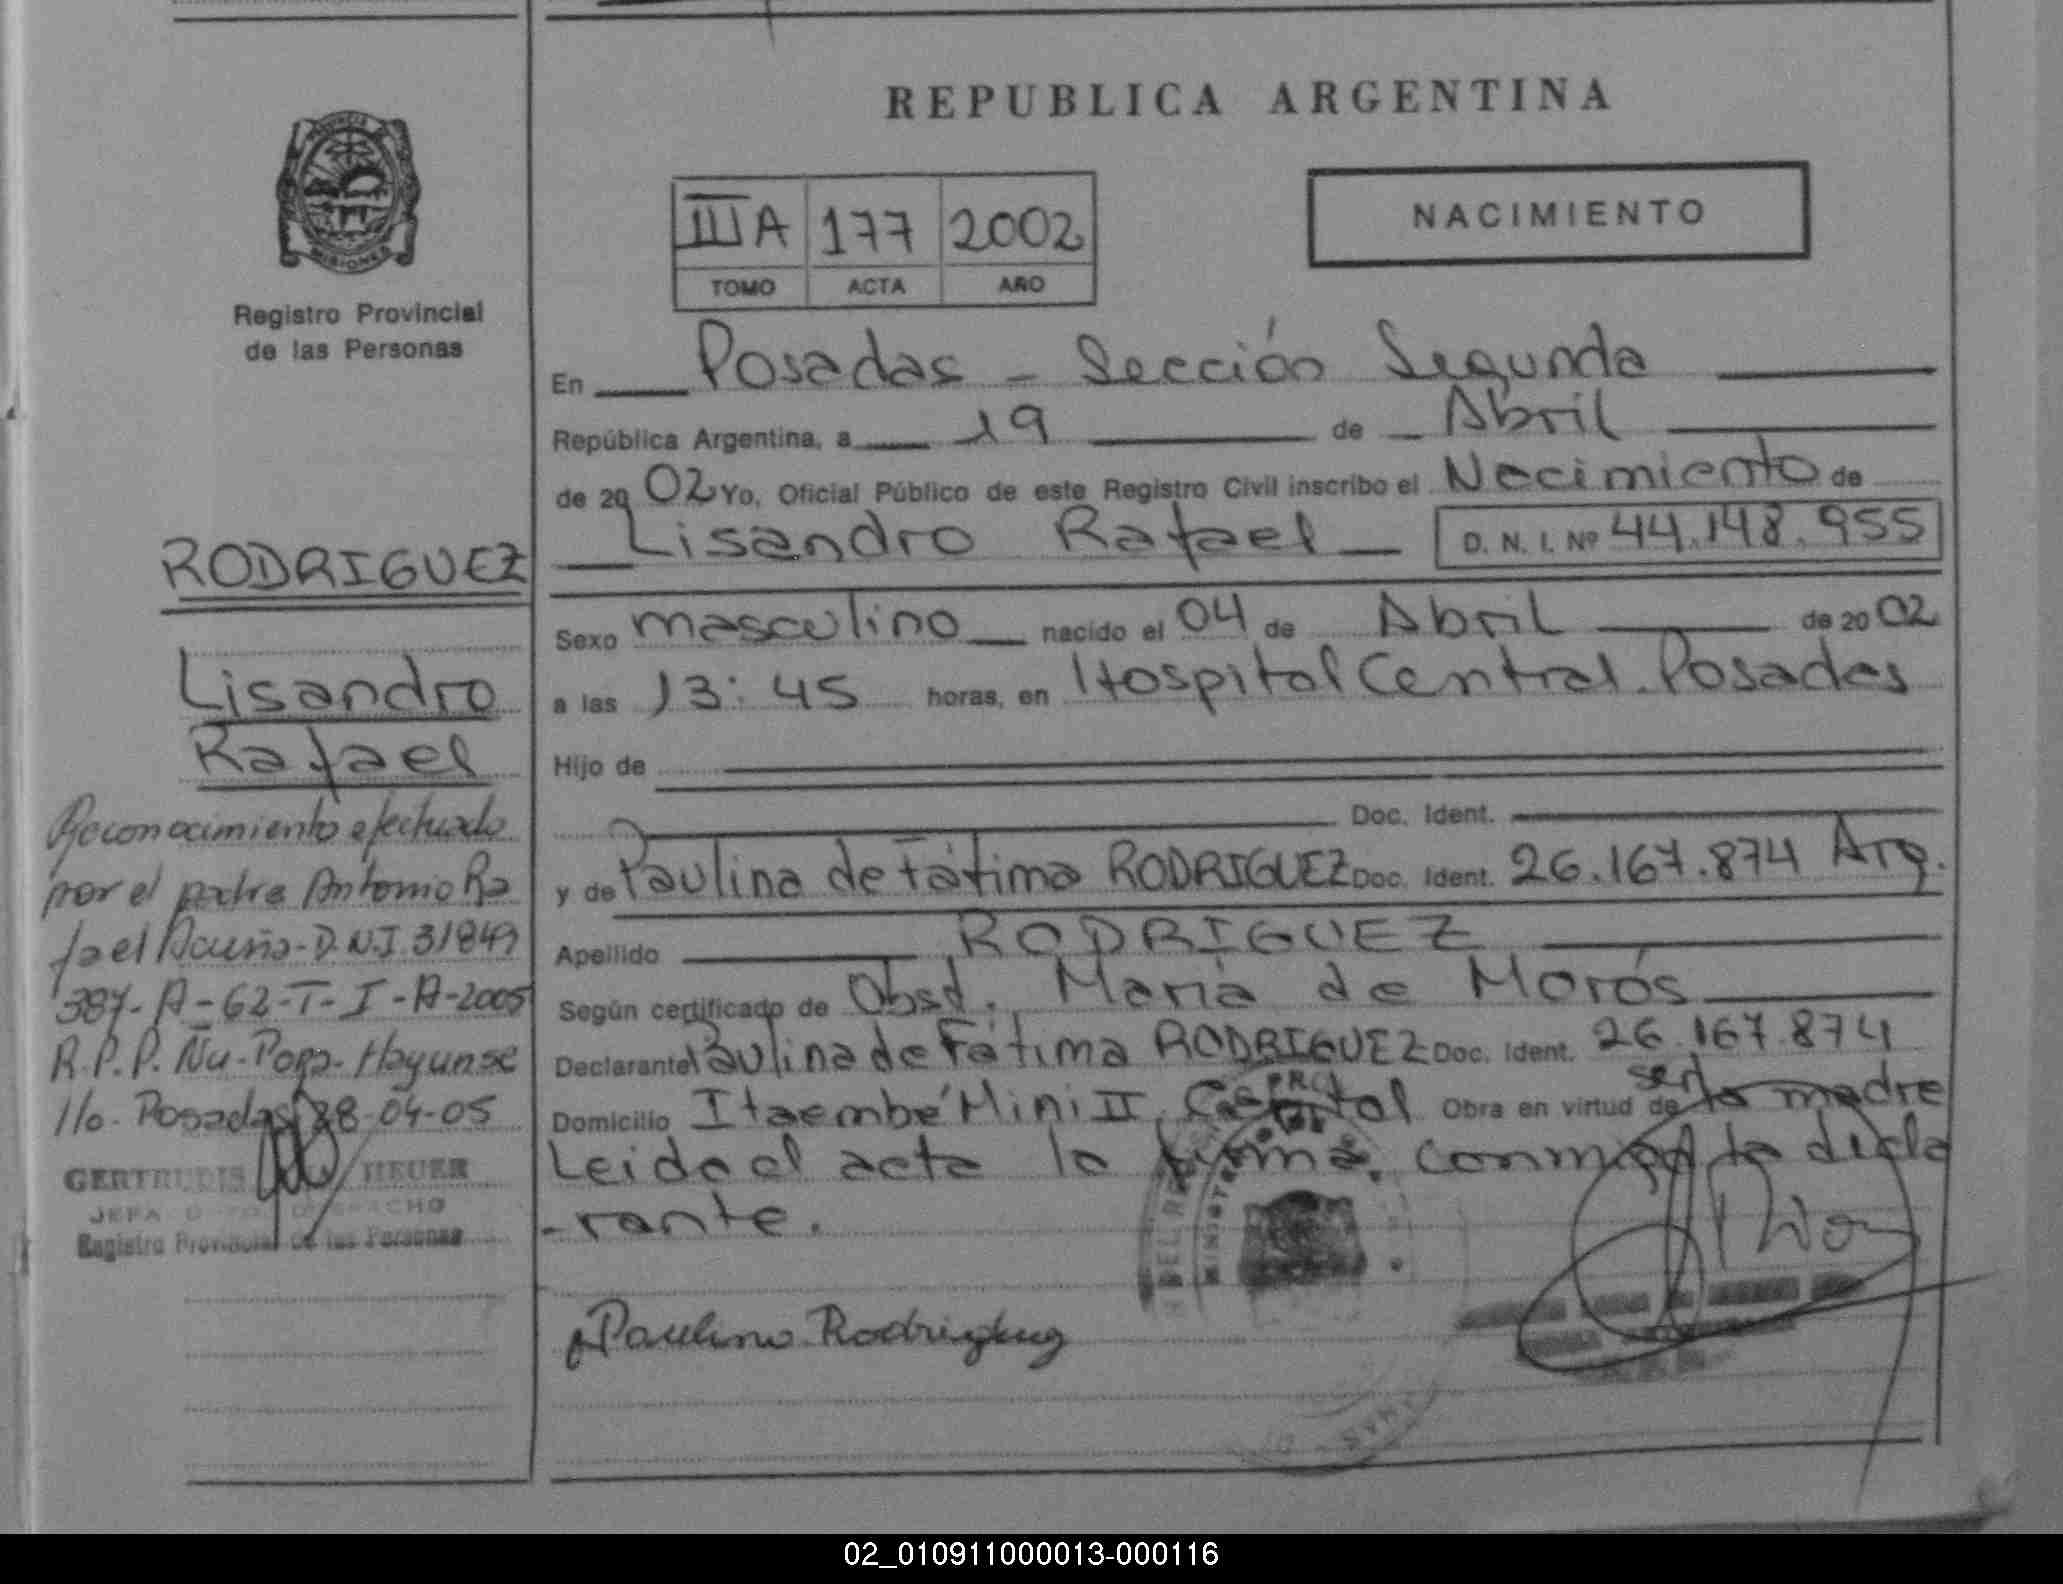 REPUBLICA ARGENTINA
MISIONES
Registro Provincial
de las Personas
IIIA 177 2002
TOMO ACTA AÑO
NACIMIENTO
En Posadas - Sección Segunda
República Argentina, a 19 de Abril
de 2002 Yo, Oficial Público de este Registro Civil inscribo el Nacimiento de
Lisandro Rafael D. N. I. Nº 44.148.955
Sexo masculino nacido el 04 de Abril de 2002
a las 13:45 horas, en Hospital Central. Posadas
Hijo de
Doc. Ident.
y de Paulina de Fátima RODRIGUEZ Doc. Ident. 26.167.874 Arg.
Apellido RODRIGUEZ
Según certificado de Obst. María de Morós
Declarante Paulina de Fátima RODRIGUEZ Doc. Ident. 26.167.874
Domicilio Itaembé Mini II, Capital Obra en virtud de ser la madre
Leida el acta la firma conmigo la decla
-rante.
Paulina Rodriguez
RODRIGUEZ
Lisandro
Rafael
Reconocimiento efectuado
por el padre Antonio Ra
fael Acuña - D.N.I. 31849
387 - A - 62 - T - I - A - 2005
R.P.P. Ñu-Pora - Hayunse
llo. Posadas 28-04-05
GERTRUDIS HEUER
JEFA DESPACHO
Registro Provincial de las Personas
02_010911000013-000116